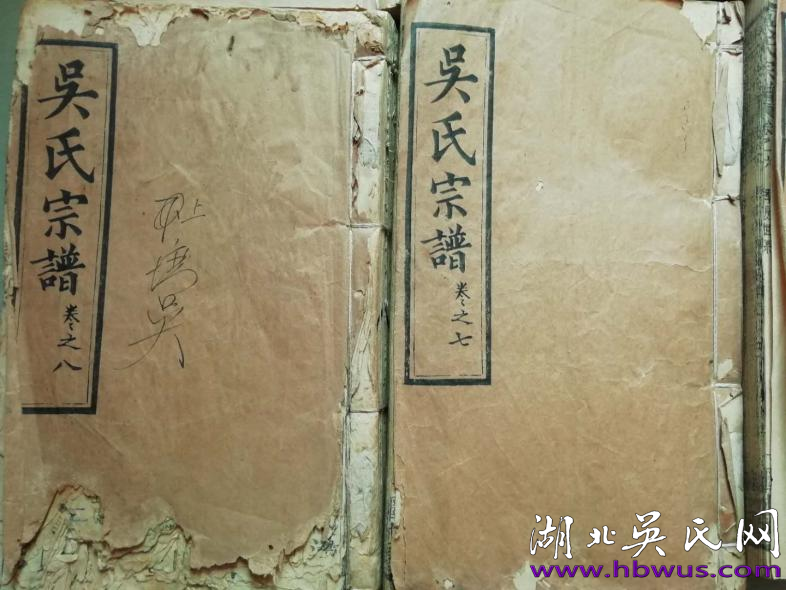 吳氏宗譜
卷之八
吳
吳氏宗譜
卷之七
湖北吴氏网
www.hbwus.com